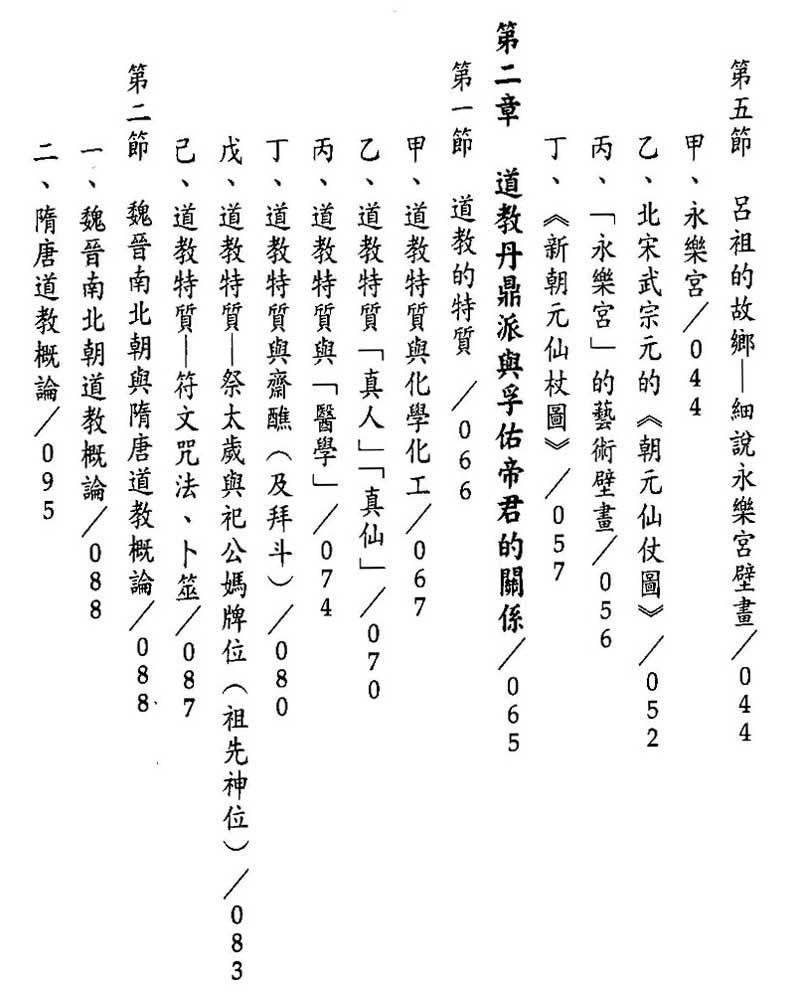 第五節　呂祖的故鄉—細說永樂宮壁畫／044
甲、永樂宮／044
乙、北宋武宗元的《朝元仙仗圖》／052
丙、「永樂宮」的藝術壁畫／056
丁、《新朝元仙杖圖》／057
第二章　道教丹鼎派與孚佑帝君的關係／065
第一節　道教的特質　／066
甲、道教特質與化學化工／067
乙、道教特質「真人」「真仙」／070
丙、道教特質與「醫學」／074
丁、道教特質與齋醮（及拜斗）／080
戊、道教特質—祭太歲與祀公媽牌位（祖先神位）／083
己、道教特質—符文咒法、卜筮／087
第二節　魏晉南北朝與隋唐道教概論／088
一、魏晉南北朝道教概論／088
二、隋唐道教概論／095